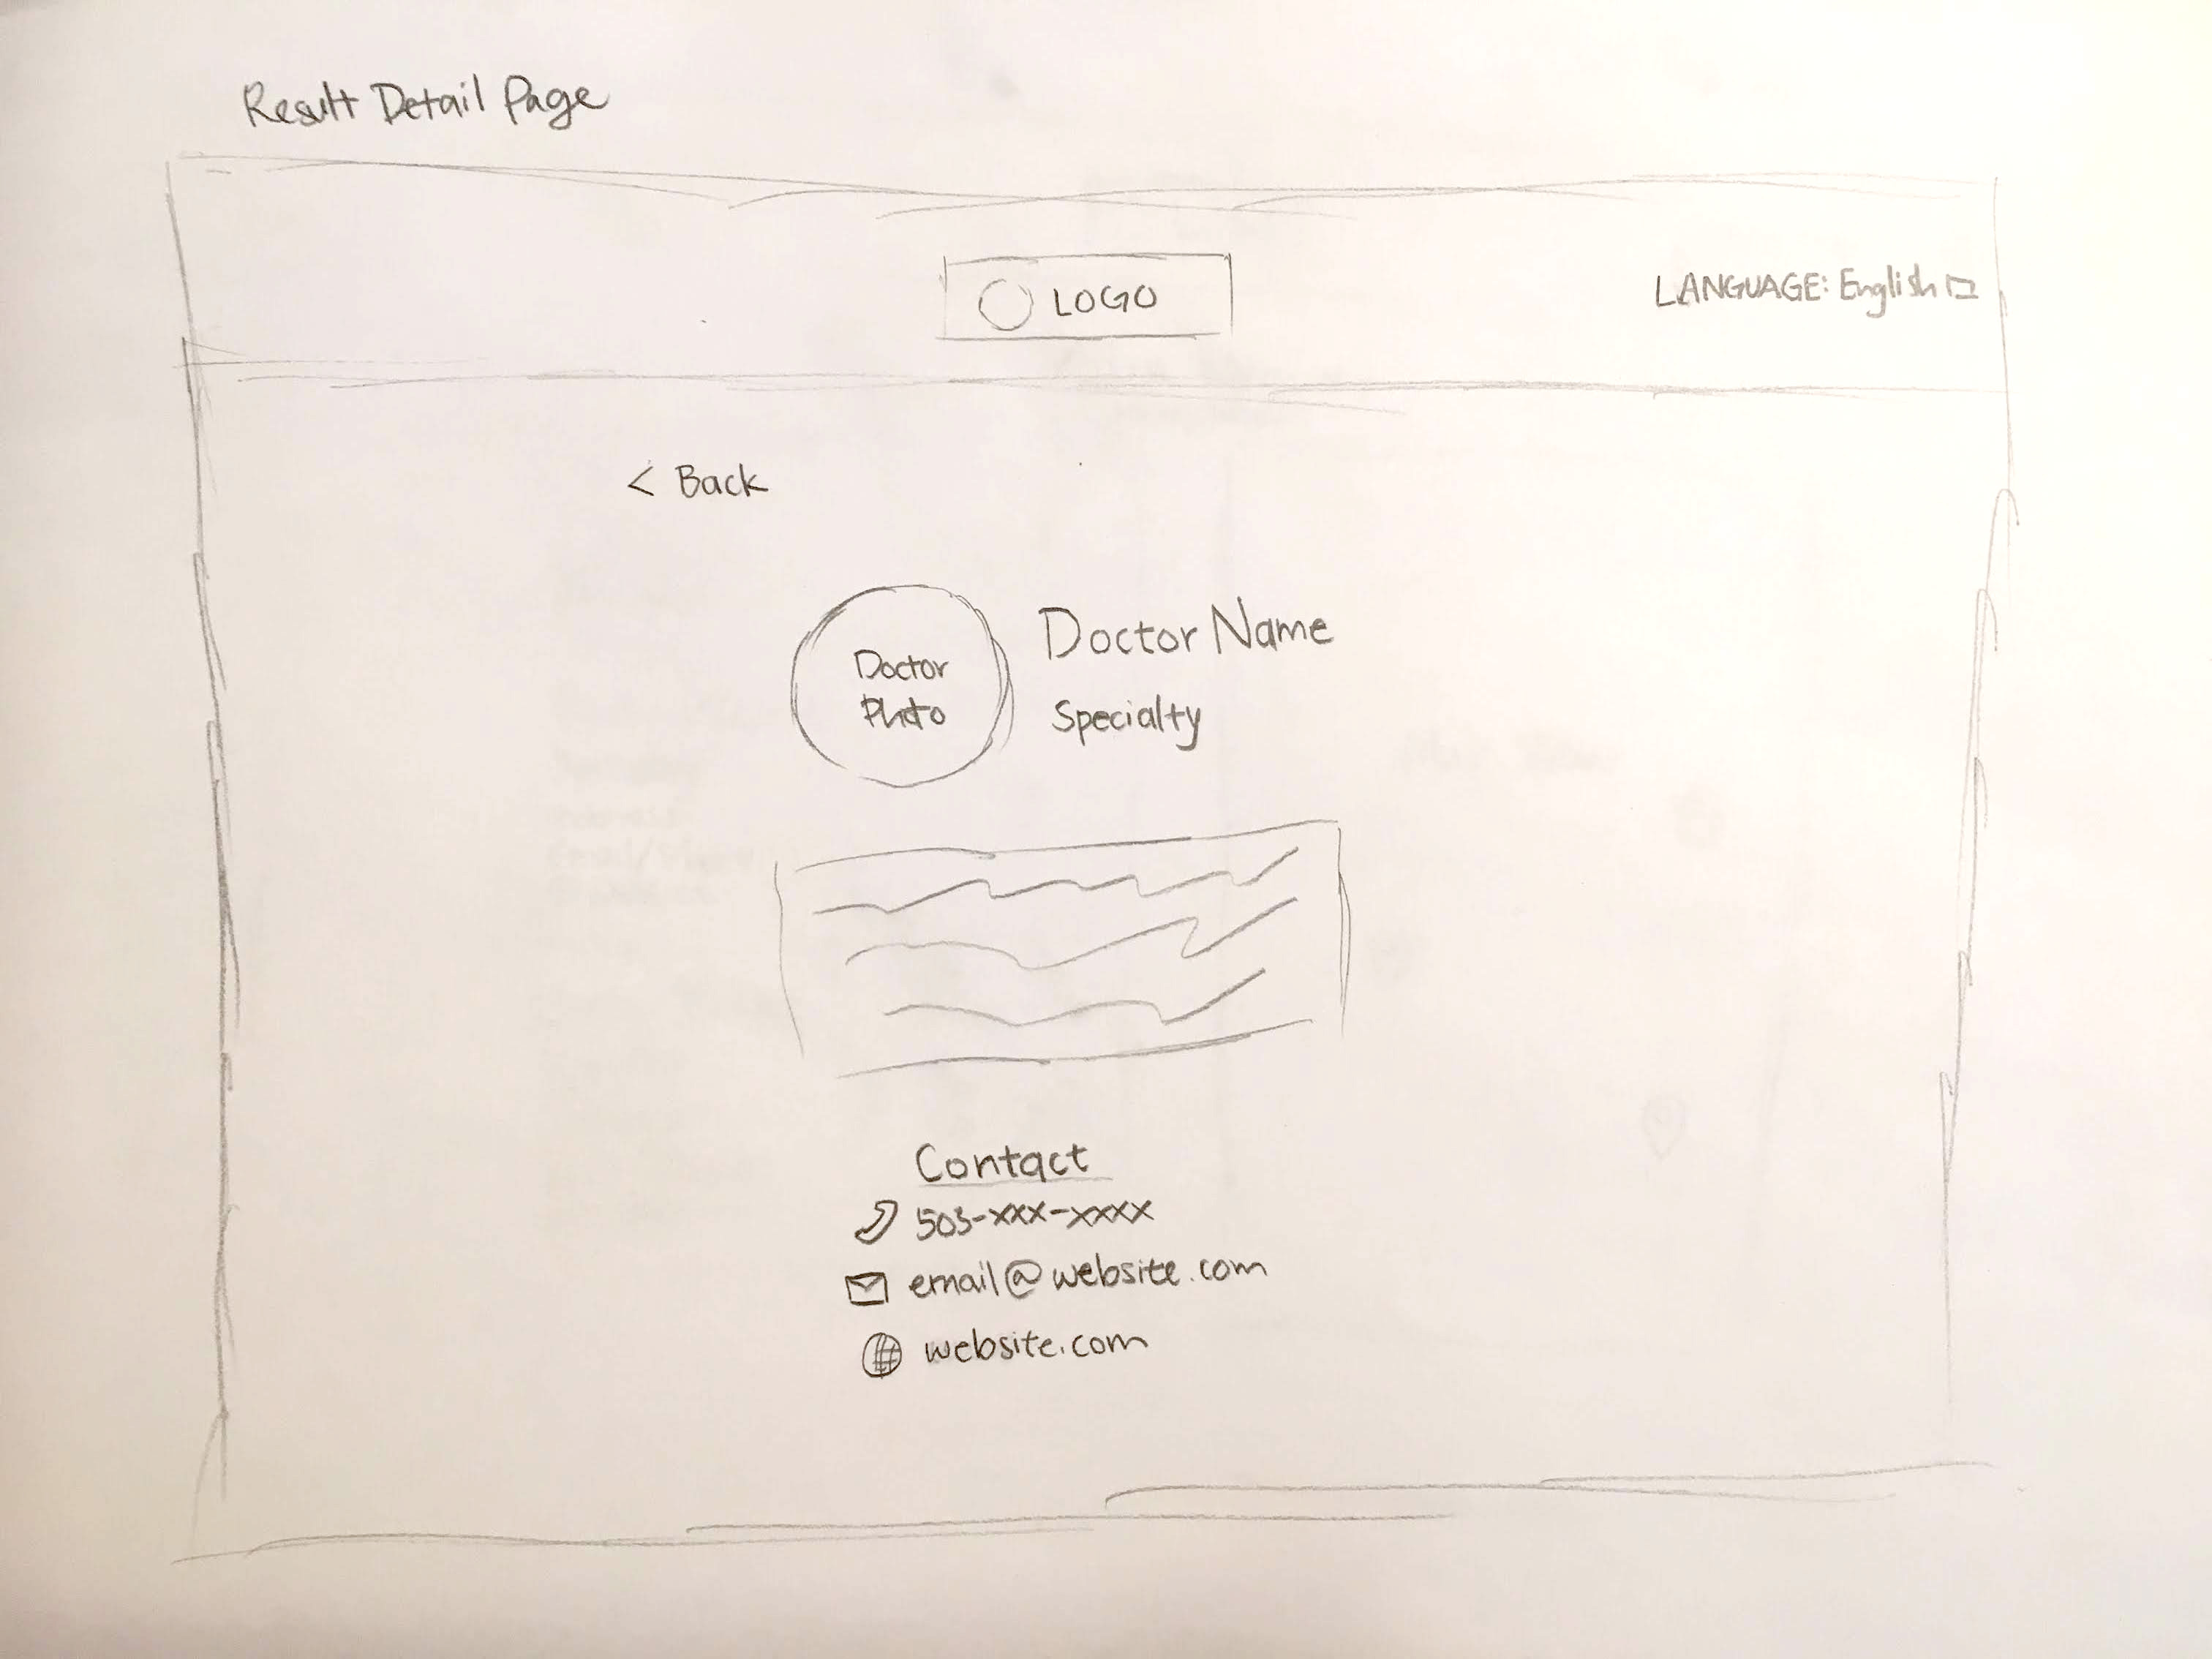 Result Detail Page
LOGO
LANGUAGE: English
< Back
Doctor Photo
Doctor Name
Specialty
Contact
503-xxx-xxxx
email@website.com
website.com